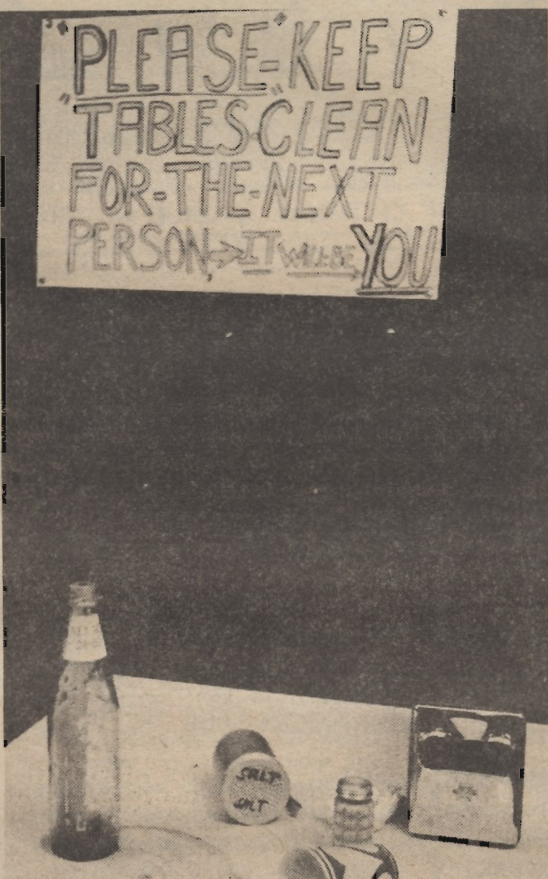 "PLEASE"-KEEP"
"TABLES"-CLEAN
FOR-THE-NEXT
PERSON,→IT WILL-BE YOU
SALT
SALT